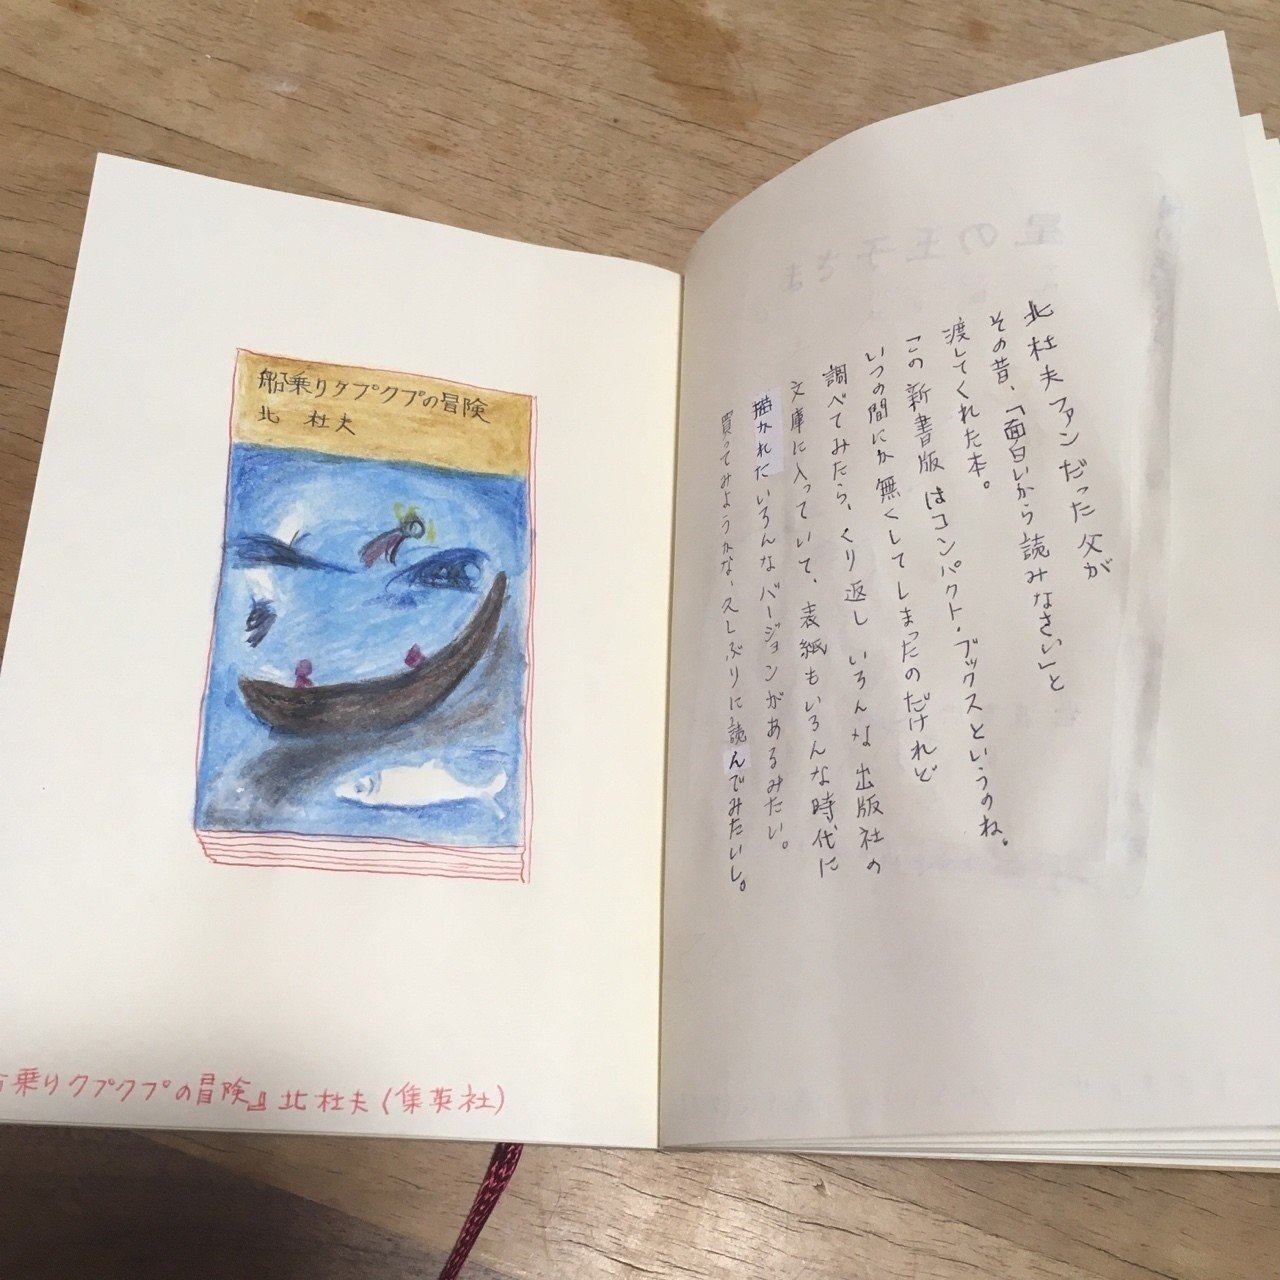 船乗りクプクプの冒険
北 杜夫
乗りクプクプの冒険』北杜夫(集英社)
北杜夫ファンだった父が
その昔、「面白いから読みなさい」と
渡してくれた本。
この新書版はコンパクト・ブックスというのね。
いつの間にか無くしてしまったのだけれど
調べてみたら、くり返しいろんな出版社の
文庫に入っていて、表紙もいろんな時代に
描かれたいろんなバージョンがあるみたい。
買ってみようかな、久しぶりに読んでみたいし。
星の王子さま